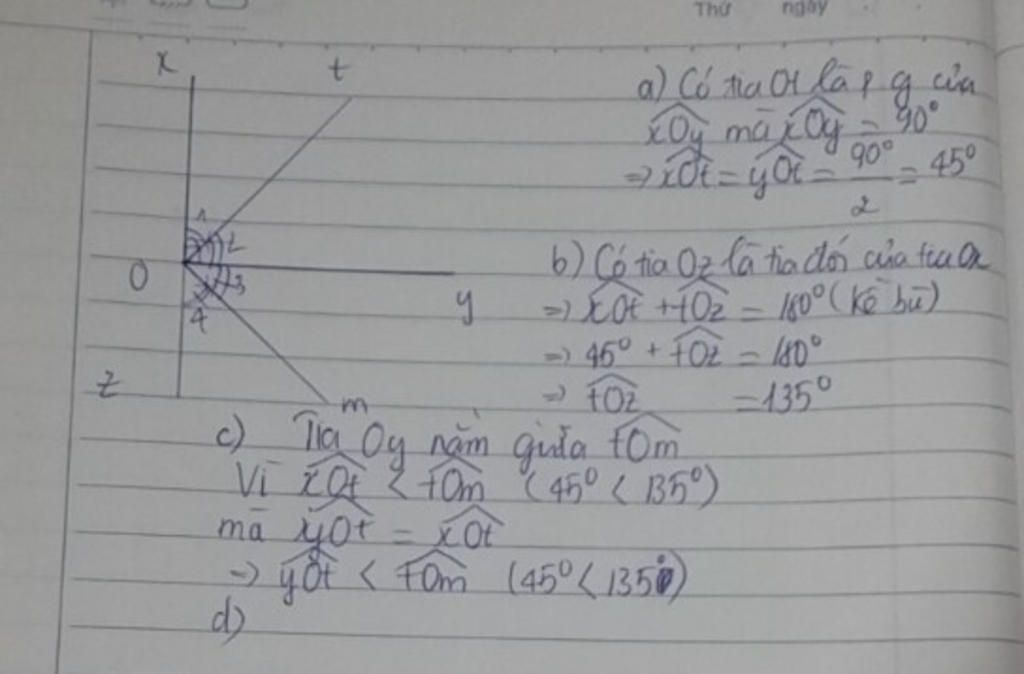 Thứ ngày
x t
1
2
O 3
y
4
z
m
a) Có tia Ot là p g của
xOy mà xOy = 90°
=> xOt = yOt = 90°/2 = 45°
b) Có tia Oz là tia đối của tia Ox
=> xOt + tOz = 180° (kề bù)
=> 45° + tOz = 180°
=> tOz = 135°
c) Tia Oy nằm giữa tOm
Vì xOt < tOm (45° < 135°)
mà yOt = xOt
=> yOt < tOm (45° < 135°)
d)